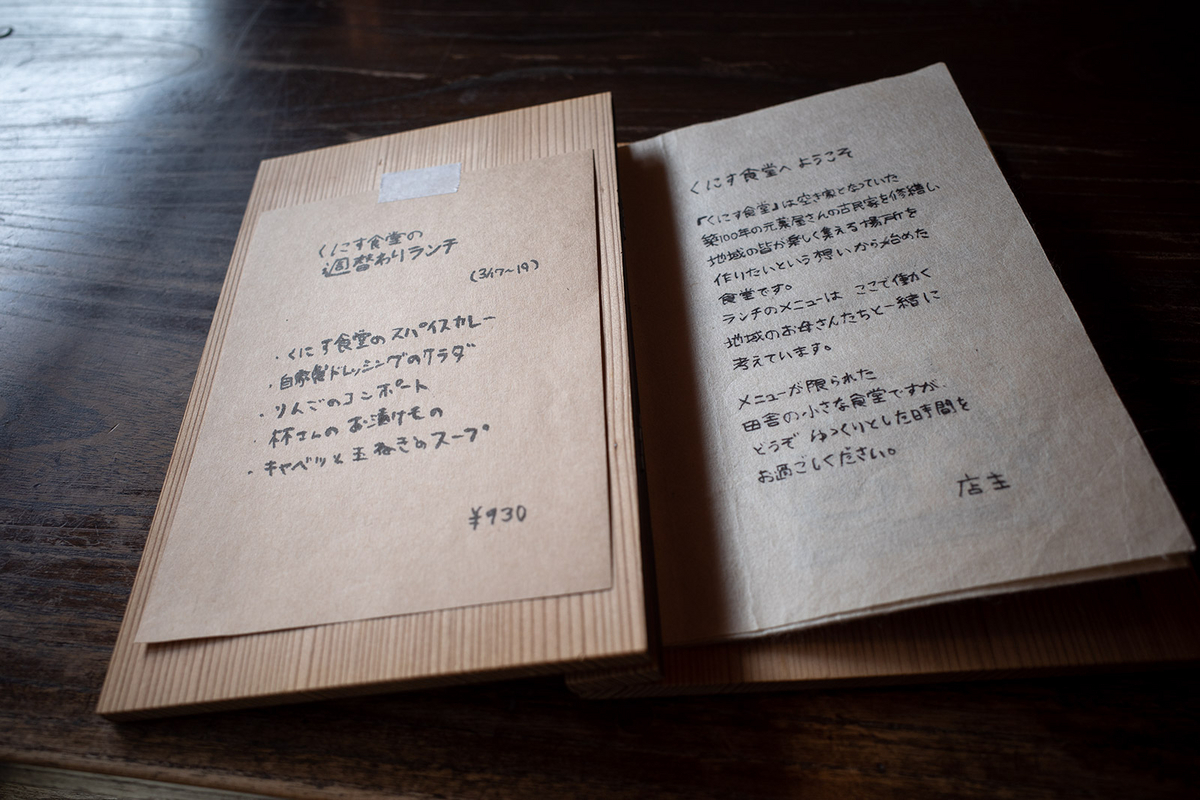 くにす食堂の
週替わりランチ
(3/17〜19)
・くにす食堂のスパイスカレー
・自家製ドレッシングのサラダ
・りんごのコンポート
・林さんのお漬けもの
・キャベツと玉ねぎのスープ
¥930
くにす食堂へようこそ
『くにす食堂』は空き家となっていた
築100年の元薬屋さんの古民家を修繕い
地域の皆が楽しく集える場所を
作りたいという想いから始めた
食堂です。
ランチのメニューは ここで働く
地域のお母さんたちと一緒に
考えています。
メニューが限られた
田舎の小さな食堂ですが、
どうぞ ゆっくりとした時間を
お過ごしください。
店主